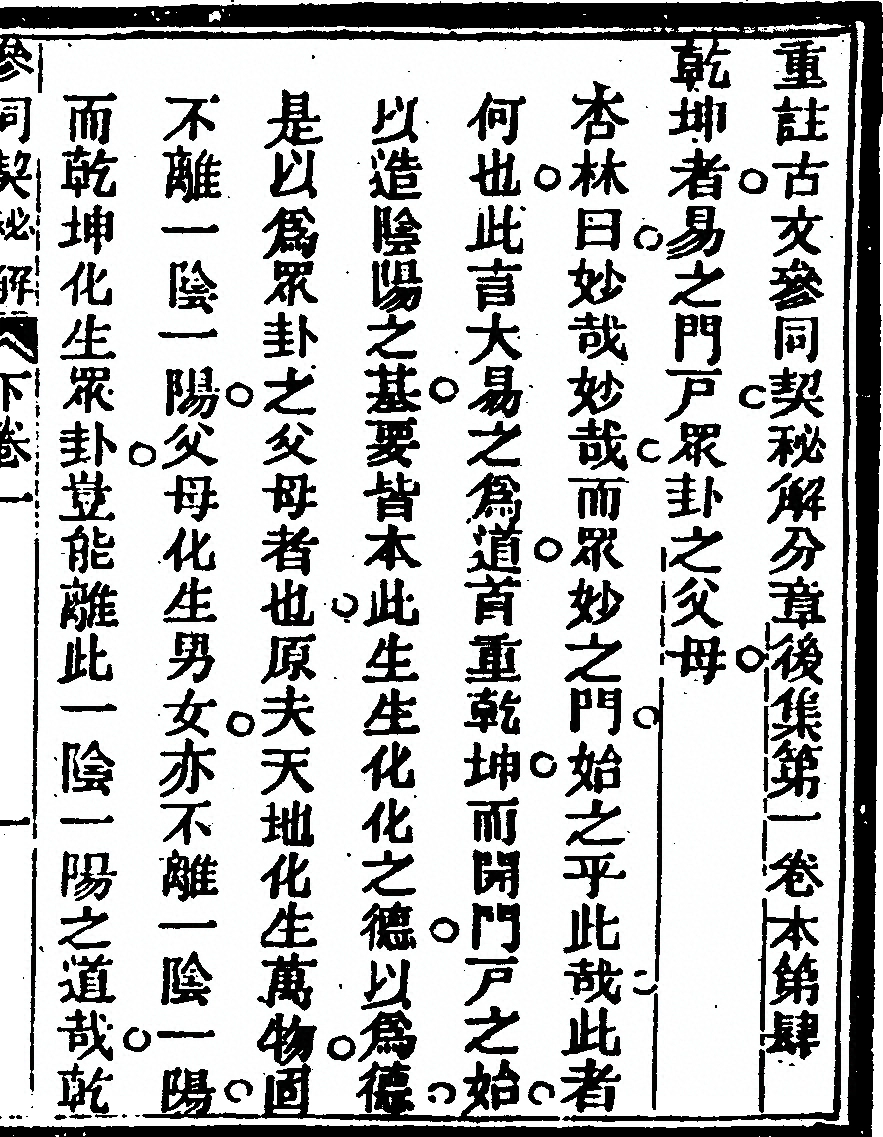 重註古文參同契秘解分章後集第一卷本第肆
乾坤者易之門戸眾卦之父母
杏林曰妙哉妙哉而眾妙之門始之乎此哉此者
何也此言大易之爲道首重乾坤而開門戸之始
以造陰陽之基要皆本此生生化化之德以爲德
是以爲眾卦之父母者也原夫天地化生萬物固
不離一陰一陽父母化生男女亦不離一陰一陽
而乾坤化生眾卦豈能離此一陰一陽之道哉乾
參同契秘解 下卷一 一